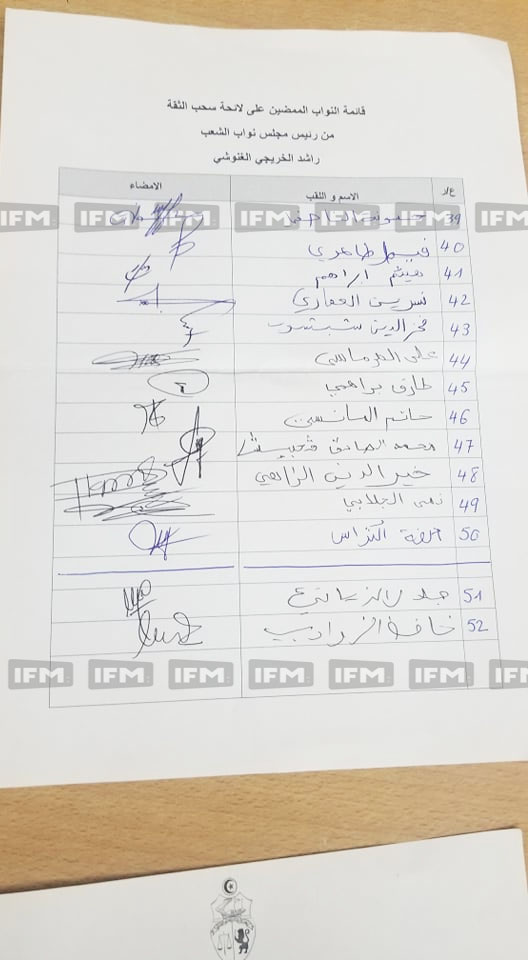 قائمة النواب الممضين على لائحة سحب الثقة
من رئيس مجلس نواب الشعب
راشد الخريجي الغنوشي
ع/ر الاسم و اللقب الامضاء
39
IFM IFM IFM IFM IFM IFM
40 طاهري
41 هيثم ابراهم
42 نسرين العماري
43 فخر الدين شبشوب
44 علي الهرماسي
45 طارق براهمي
46 حاتم
47 محمد الصادق قحبيش
48 خير الدين الزاهي
49 نهى
50 الفة التراس
51 جلال الزياتي
52 خافة الزوادي
IFM IFM IFM IFM IFM IFM IFM